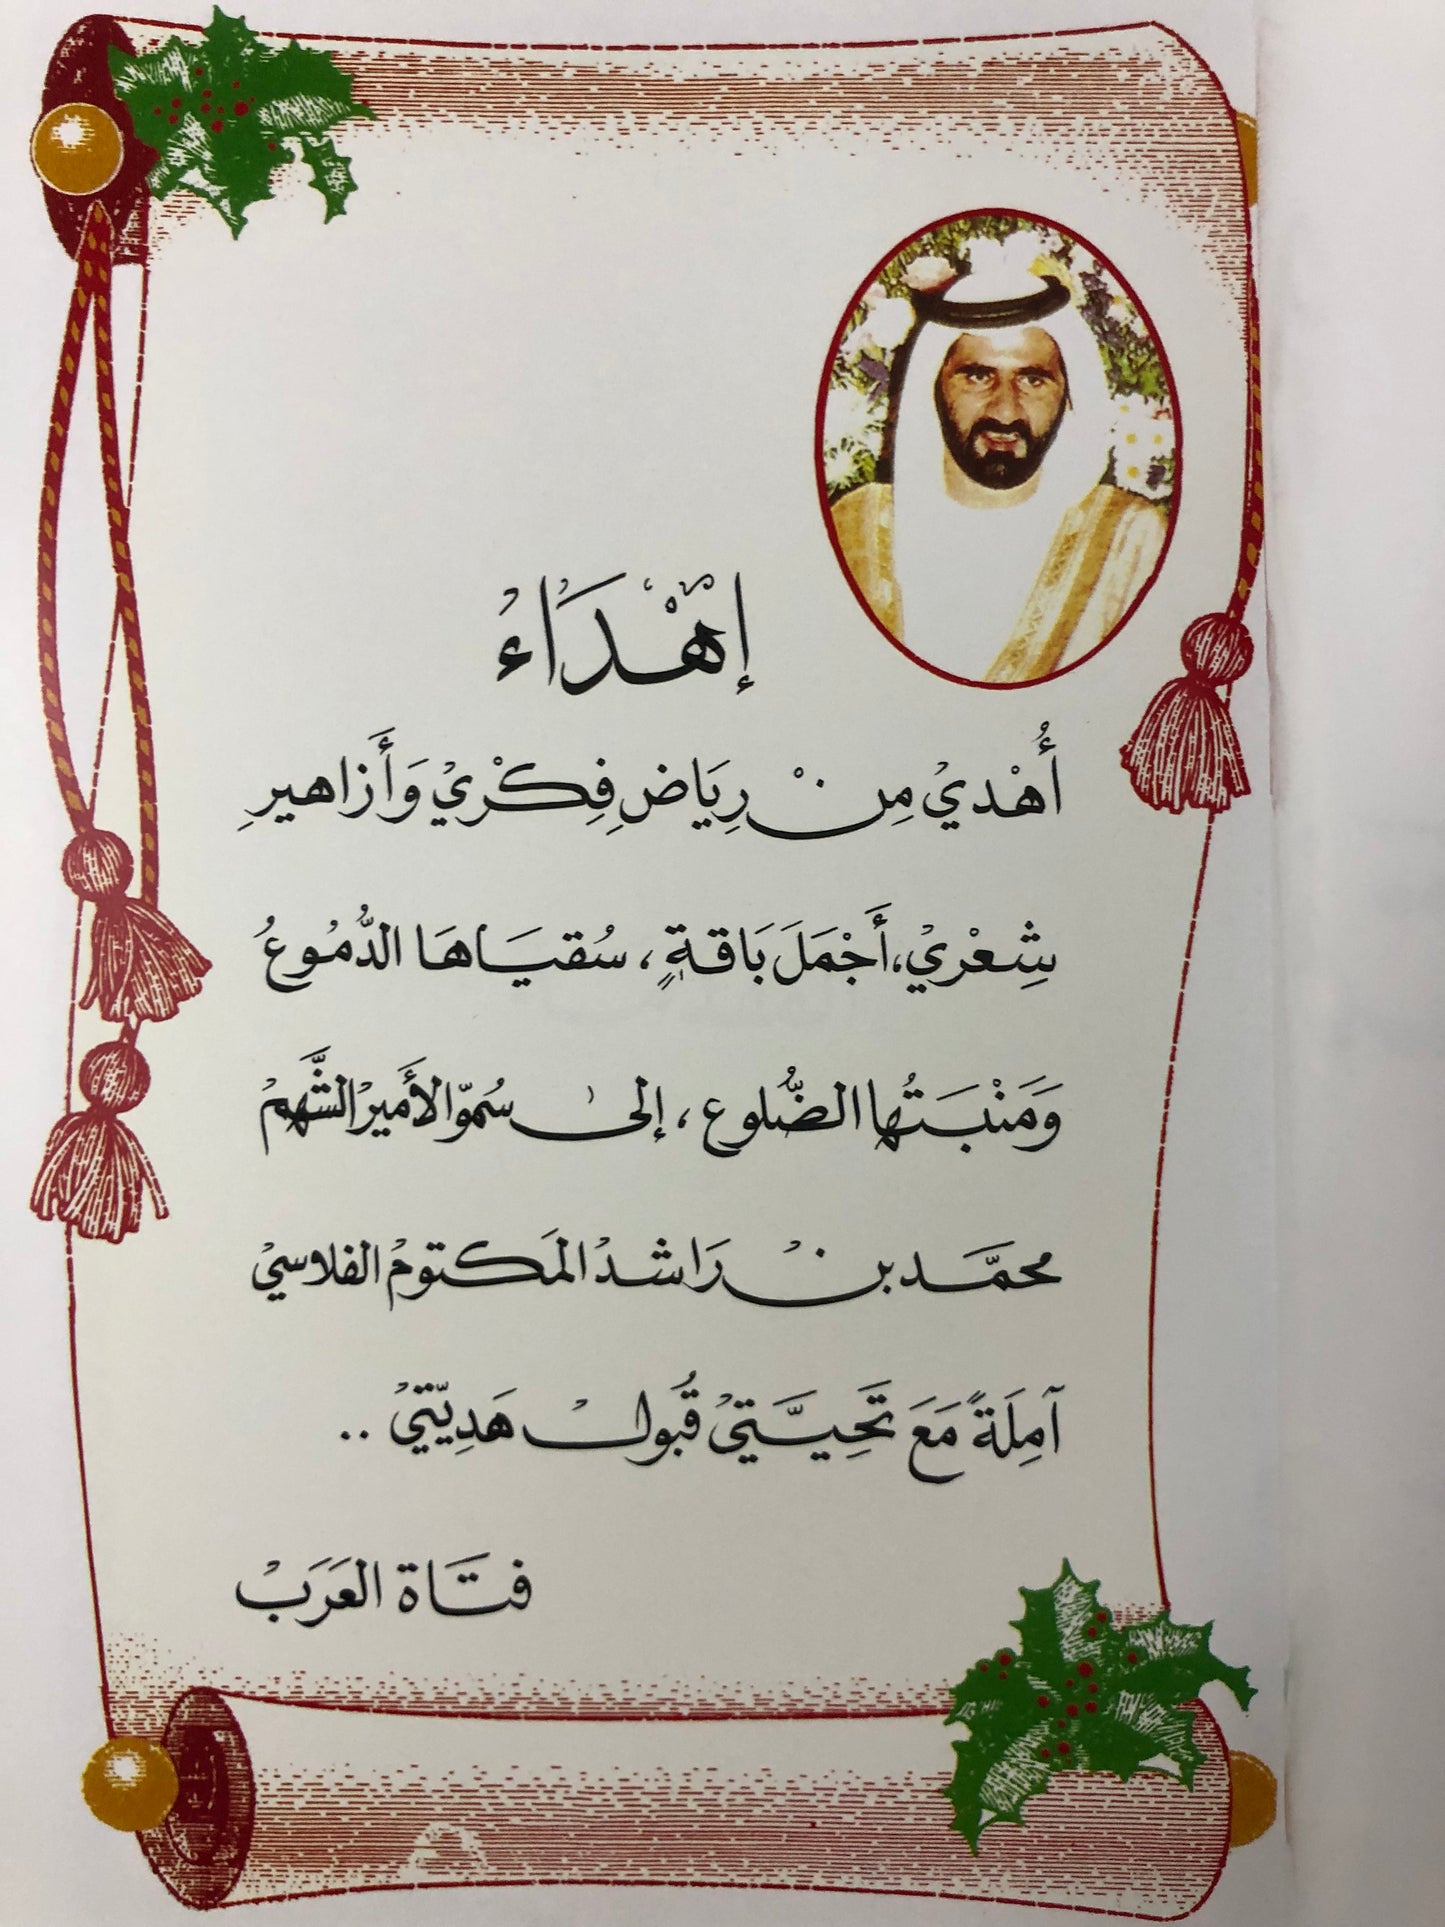 إِهْدَاءُ
أُهْدِيْ مِنْ رِيَاضِ فِكْرِيْ وَأَزاهيرِ
شِعْرِيْ، أَجْمَلَ بَاقةٍ، سُقيَاهَا الدُّمُوعُ
وَمَنْبَتُها الضُّلوع، إلى سُموّ الأَميرْ الشَّهمْ
محمَّد بنْ رَاشدْ المَكتومْ الفلاسيْ
آمِلَةً مَعَ تَحِيَّتيْ قُبولْ هَدِيّتيْ ..
فتَاة العَرَبْ